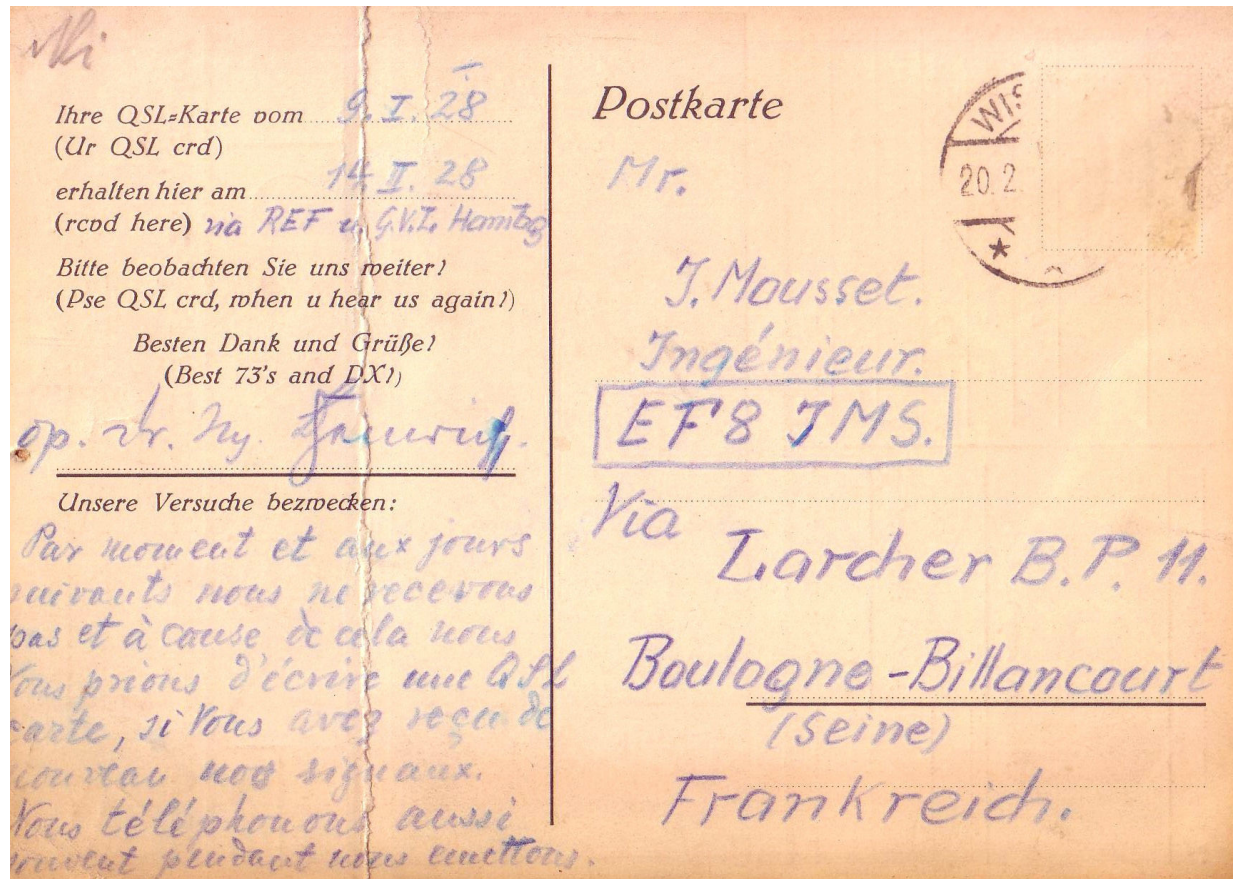 Ihre QSL=Karte vom 9. I. 28
(Ur QSL crd)
erhalten hier am 14. II. 28
(rcvd here) via REF u. G.V.I. Hambg
Bitte beobachten Sie uns weiter!
(Pse QSL crd, when u hear us again!)
Besten Dank und Grüße!
(Best 73's and DX!)
op. Dr. Hg.
Unsere Versuche bezwecken:
Par moment et aux jours
suivants nous ne recevons
pas et à cause de cela nous
Vous prions d'écrire une QSL
carte, si Vous avez reçu de
nouveau nos signaux.
Nous téléphonons aussi
souvent pendant nous émettons.
Postkarte
WIS
20.2.
Mr.
J. Mousset.
Ingénieur.
EF8 JMS.
Via
Larcher B.P. 11.
Boulogne-Billancourt
(Seine)
Frankreich.